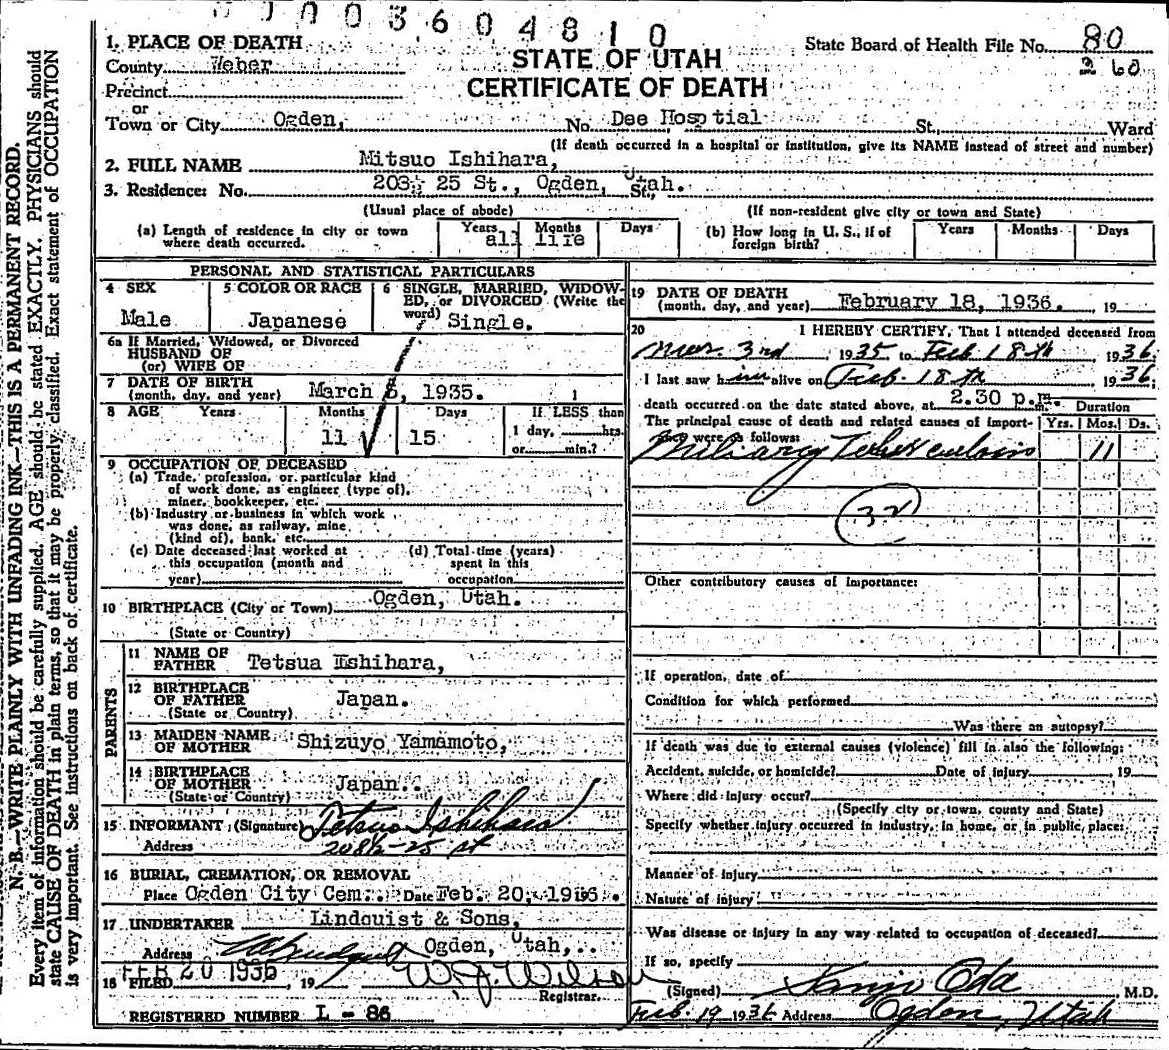 0003604810
1. PLACE OF DEATH
STATE OF UTAH
CERTIFICATE OF DEATH
State Board of Health File No. 80
260
County Weber
Precinct
or
Town or City Ogden, No. Dee Hosptial St., Ward
(If death occurred in a hospital or institution, give its NAME instead of street and number)
2. FULL NAME Mitsuo Ishihara,
3. Residence: No. 203 25 St., Ogden, Utah. St.,
(Usual place of abode) (If non-resident give city or town and State)
(a) Length of residence in city or town where death occurred. Years Months Days all life
(b) How long in U. S., if of foreign birth? Years Months Days
PERSONAL AND STATISTICAL PARTICULARS
4 SEX Male
5 COLOR OR RACE Japanese
6 SINGLE, MARRIED, WIDOWED, or DIVORCED (Write the word) Single.
6a If Married, Widowed, or Divorced
HUSBAND OF
(or) WIFE OF
7 DATE OF BIRTH
(month, day, and year) March 3, 1935. 1
8 AGE Years Months Days If LESS than
11 15 1 day, hrs.
or min.?
9 OCCUPATION OF DECEASED
(a) Trade, profession, or particular kind
of work done, as engineer (type of),
miner, bookkeeper, etc.
(b) Industry or business in which work
was done, as railway, mine
(kind of), bank, etc.
(c) Date deceased last worked at
this occupation (month and
year)
(d) Total time (years)
spent in this
occupation
10 BIRTHPLACE (City or Town) Ogden, Utah.
(State or Country)
PARENTS
11 NAME OF
FATHER Tetsua Ishihara,
12 BIRTHPLACE
OF FATHER Japan.
(State or Country)
13 MAIDEN NAME
OF MOTHER Shizuyo Yamamoto,
14 BIRTHPLACE
OF MOTHER Japan..
(State or Country)
15 INFORMANT (Signature) Tetsuo Ishihara
Address 208½-25 st
16 BURIAL, CREMATION, OR REMOVAL
Place Ogden City Cem. Date Feb. 20, 1936.
17 UNDERTAKER Lindquist & Sons,
Address Ogden, Utah,..
18 FILED FEB 20 1936, 19
W. J. Wilson
Registrar.
REGISTERED NUMBER L - 86
19 DATE OF DEATH
(month, day, and year) February 18, 1936. 19
20 I HEREBY CERTIFY, That I attended deceased from
Mar. 3rd, 1935 to Feb 18th, 1936
I last saw him alive on Feb. 18th 1936;
death occurred on the date stated above, at 2.30 p.m. Duration
The principal cause of death and related causes of import- Yrs. Mos. Ds.
ance were as follows:
Miliary Tuberculosis 11
(32)
Other contributory causes of importance:
If operation, date of
Condition for which performed
Was there an autopsy?
If death was due to external causes (violence) fill in also the following:
Accident, suicide, or homicide? Date of injury 19
Where did injury occur?
(Specify city or town, county and State)
Specify whether injury occurred in industry, in home, or in public, place:
Manner of injury
Nature of injury
Was disease or injury in any way related to occupation of deceased?
If so, specify
(Signed) Sanjo Oda M.D.
Feb. 19 1936 Address Ogden, Utah
N. B.—WRITE PLAINLY WITH UNFADING INK—THIS IS A PERMANENT RECORD.
Every item of information should be carefully supplied. AGE should be stated EXACTLY. PHYSICIANS should
state CAUSE OF DEATH in plain terms, so that it may be properly classified. Exact statement of OCCUPATION
is very important. See instructions on back of certificate.